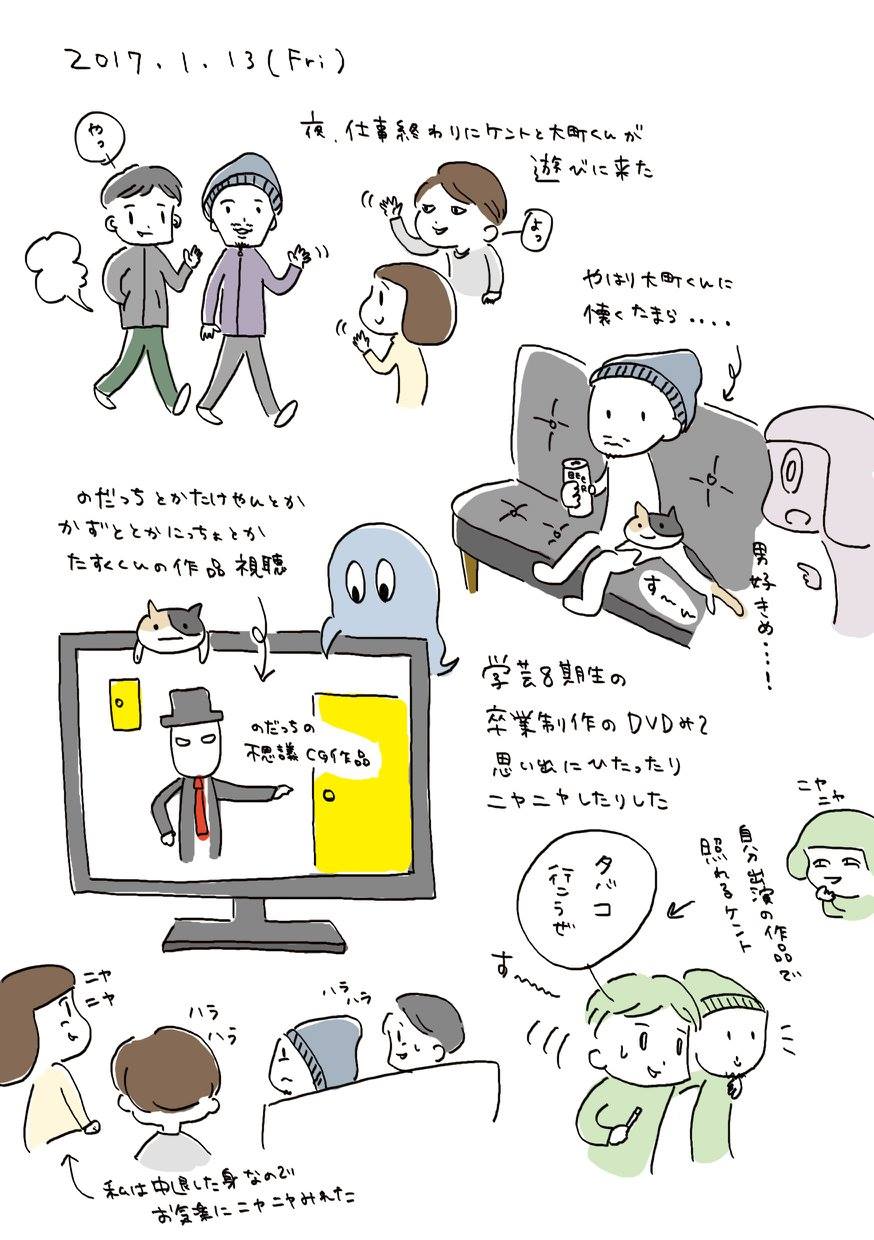 2017.1.13(Fri)
夜、仕事終わりにケントと大町くんが
遊びに来た
やっ
よっ
やはり大町くんに
懐くたまら....
BEER
す〜っ
男好きめ...!
のだっちとかたけやんとか
かずととかにっちょとか
たすくくんの作品視聴
のだっちの
不思議CG作品
学芸8期生の
卒業制作のDVDみて
思い出にひたったり
ニヤニヤしたりした
ニヤ
ニヤ
自分出演の作品で
照れるケント
タバコ
行こうぜ
す〜〜
ニヤ
ニヤ
ハラ
ハラ
ハラ
ハラ
私は中退した身なので
お気楽にニヤニヤみれた